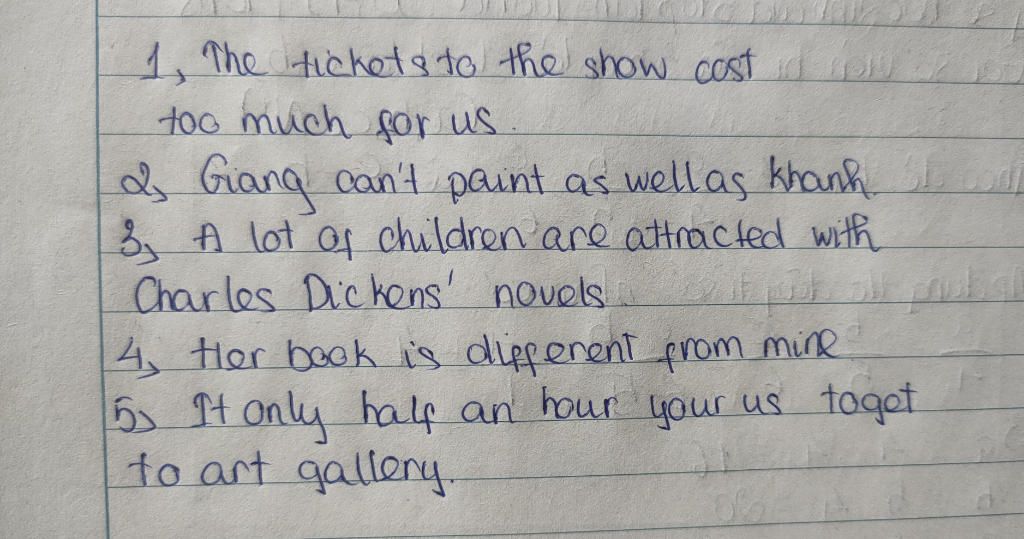 1, The tickets to the show cost
too much for us.
2, Giang can't paint as well as khanh.
3, A lot of children are attracted with
Charles Dickens' novels
4, Her book is different from mine
5, It only half an hour your us to get
to art gallery.